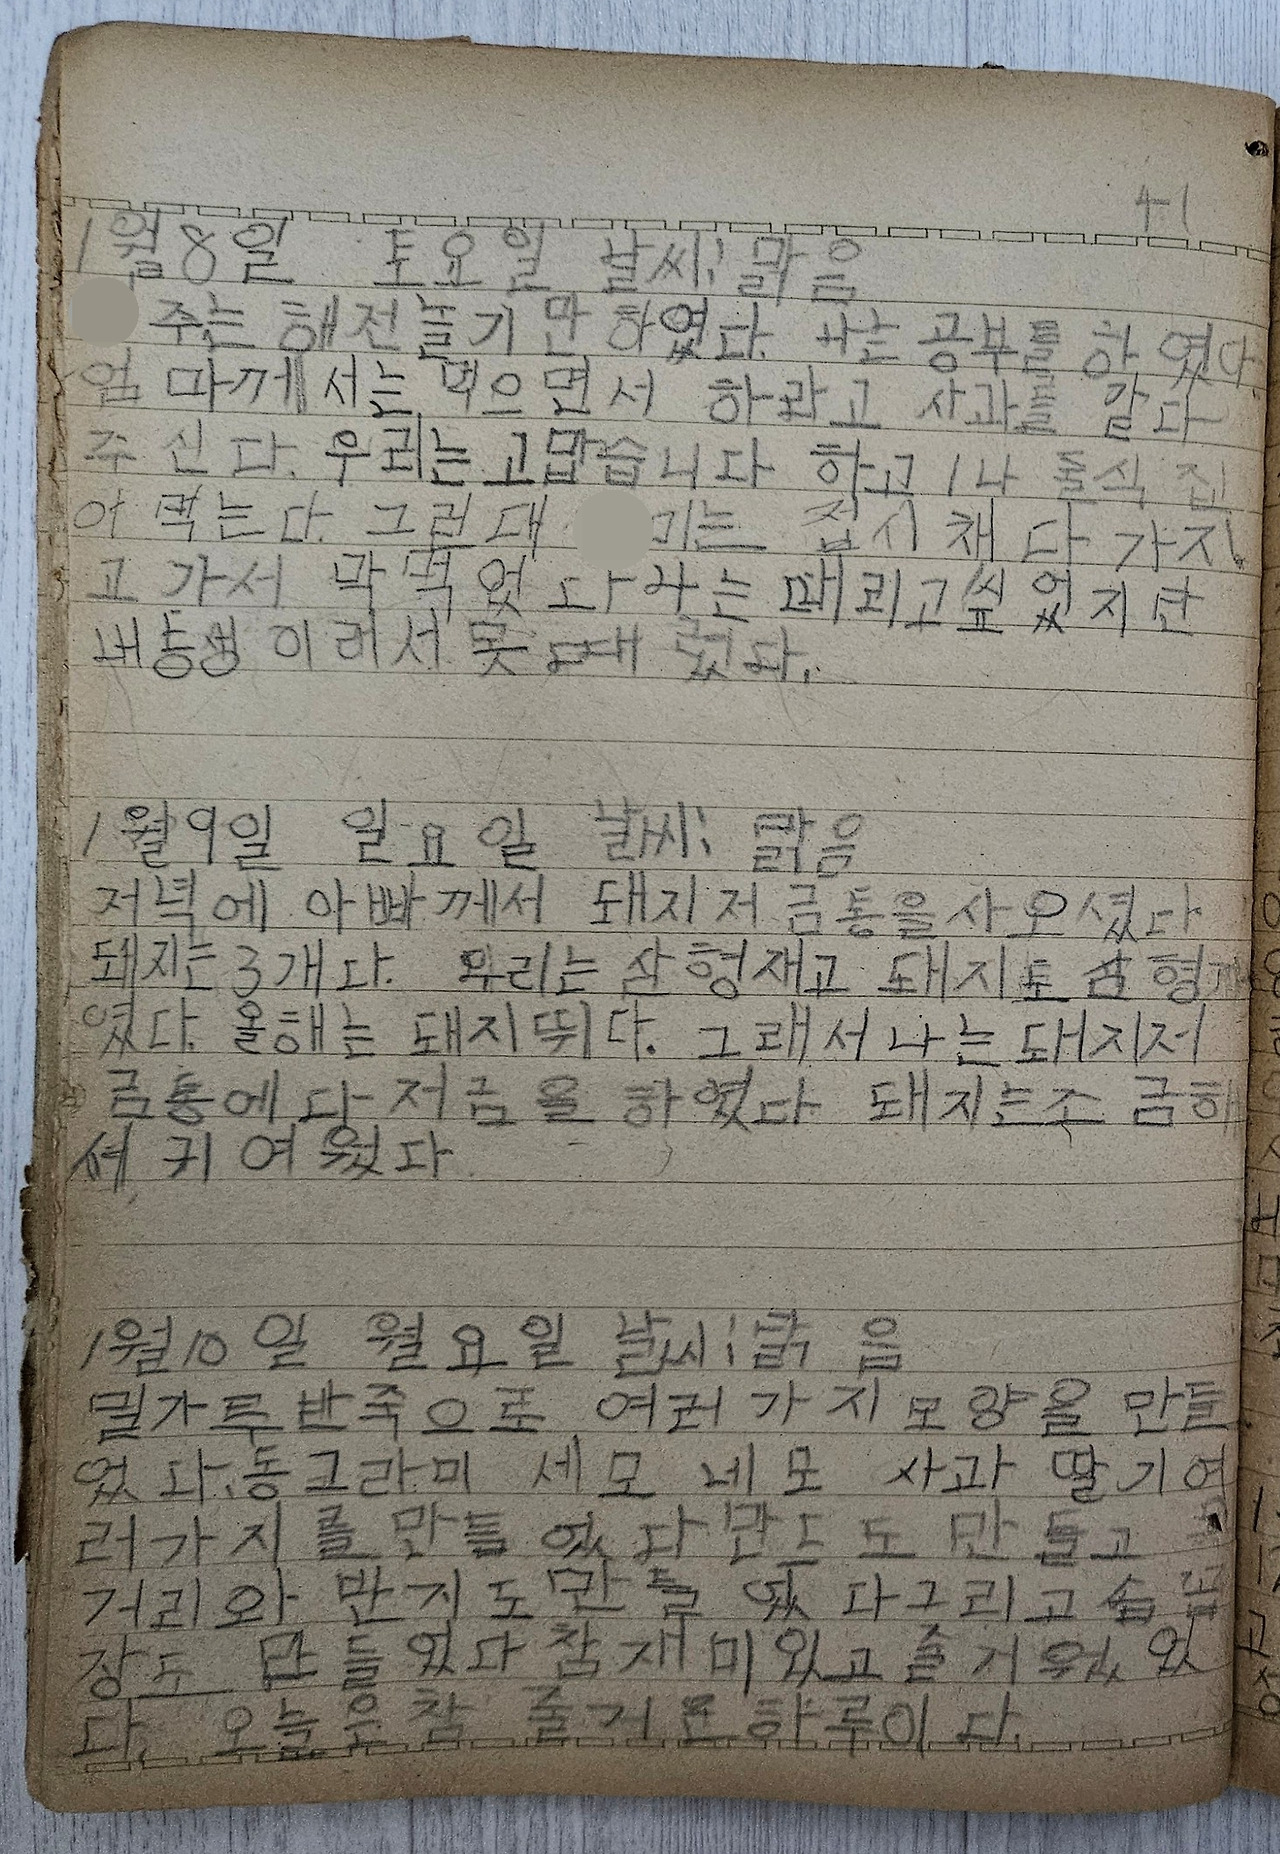 41
1월8일 토요일 날씨: 맑음
주는 해전놀기만 하였다. 나는 공부를 하였다
엄마께서는 먹으면서 하라고 사과를 갈다
주신다. 우리는 고맙습니다 하고 1나 둘식 집
어 먹는다. 그런대 미는 접시채 다 가지
고 가서 막 먹었다 나는 때리고 싶었지만
내동생이러서 못때렸다.
1월9일 일요일 날씨: 맑음
저녁에 아빠께서 돼지저금통을 사오셨다
돼지는 3개다. 우리는 삼형재고 돼지도 삼형재
였다. 올해는 돼지뛰다. 그래서 나는 돼지저
금통에다 저금을 하였다 돼지는 조금하
셔 귀여웠다
1월10일 월요일 날씨: 맑음
밀가루반죽으로 여러가지 모양을 만들
었다. 동그라미 세모 네모 사과 딸기 여
러가지를 만들었다 만드도 만들고
거리와 반지도 만들었다 그리고
장도 만들었다 참 재미있고 즐거웠었
다. 오늘은 참 즐거운 하루이다.